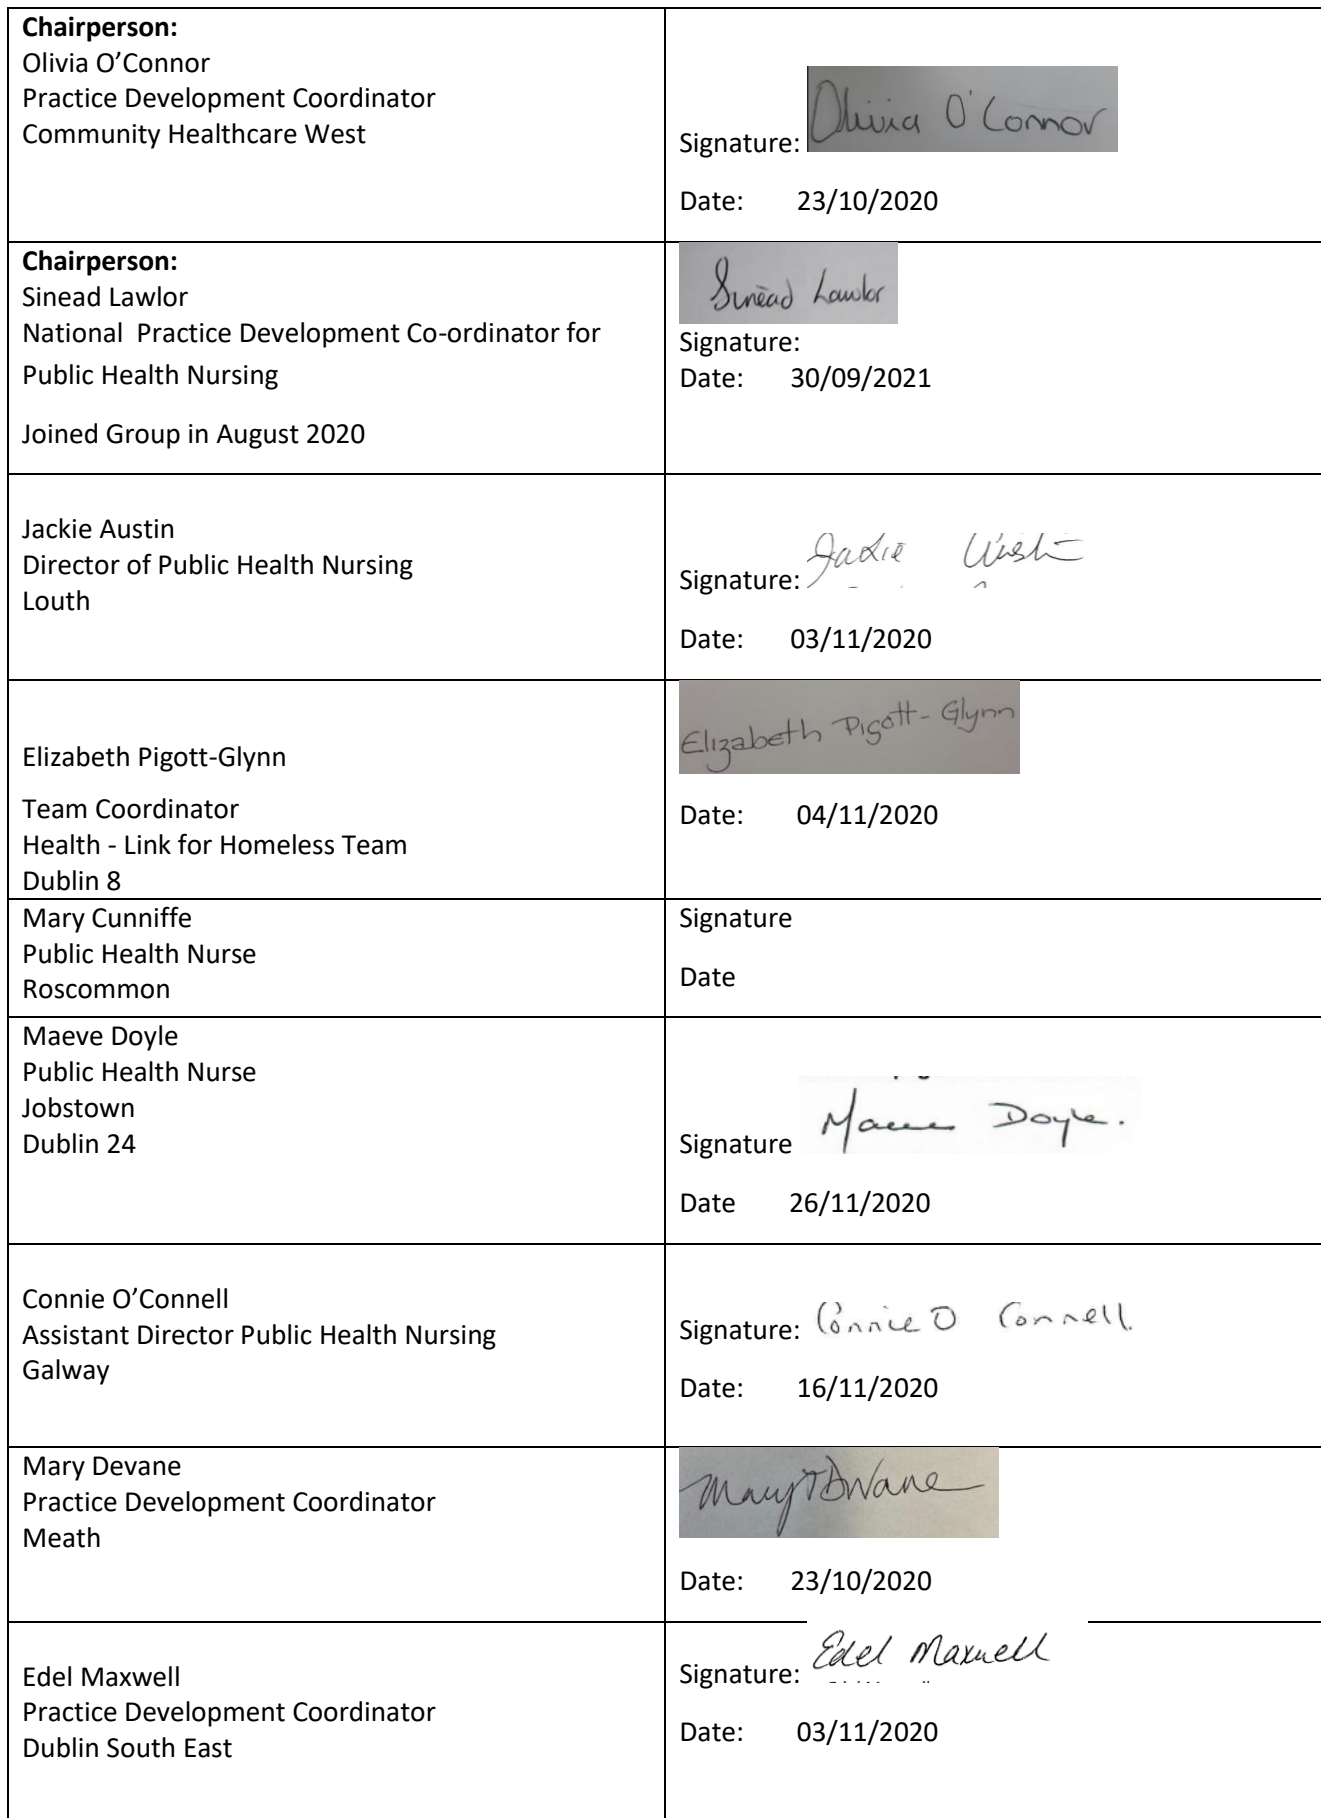 Chairperson:
Olivia O’Connor
Practice Development Coordinator
Community Healthcare West
Signature: Olivia O'Connor
Date: 23/10/2020
Chairperson:
Sinead Lawlor
National  Practice Development Co-ordinator for
Public Health Nursing
Joined Group in August 2020
Sinéad Lawlor
Signature:
Date: 30/09/2021
Jackie Austin
Director of Public Health Nursing
Louth
Signature: Jackie Austin
Date: 03/11/2020
Elizabeth Pigott-Glynn
Team Coordinator
Health - Link for Homeless Team
Dublin 8
Elizabeth Pigott-Glynn
Date: 04/11/2020
Mary Cunniffe
Public Health Nurse
Roscommon
Signature
Date
Maeve Doyle
Public Health Nurse
Jobstown
Dublin 24
Signature Maeve Doyle.
Date 26/11/2020
Connie O’Connell
Assistant Director Public Health Nursing
Galway
Signature: Connie O Connell
Date: 16/11/2020
Mary Devane
Practice Development Coordinator
Meath
Date: 23/10/2020
Edel Maxwell
Practice Development Coordinator
Dublin South East
Signature: Edel Maxwell
Date: 03/11/2020